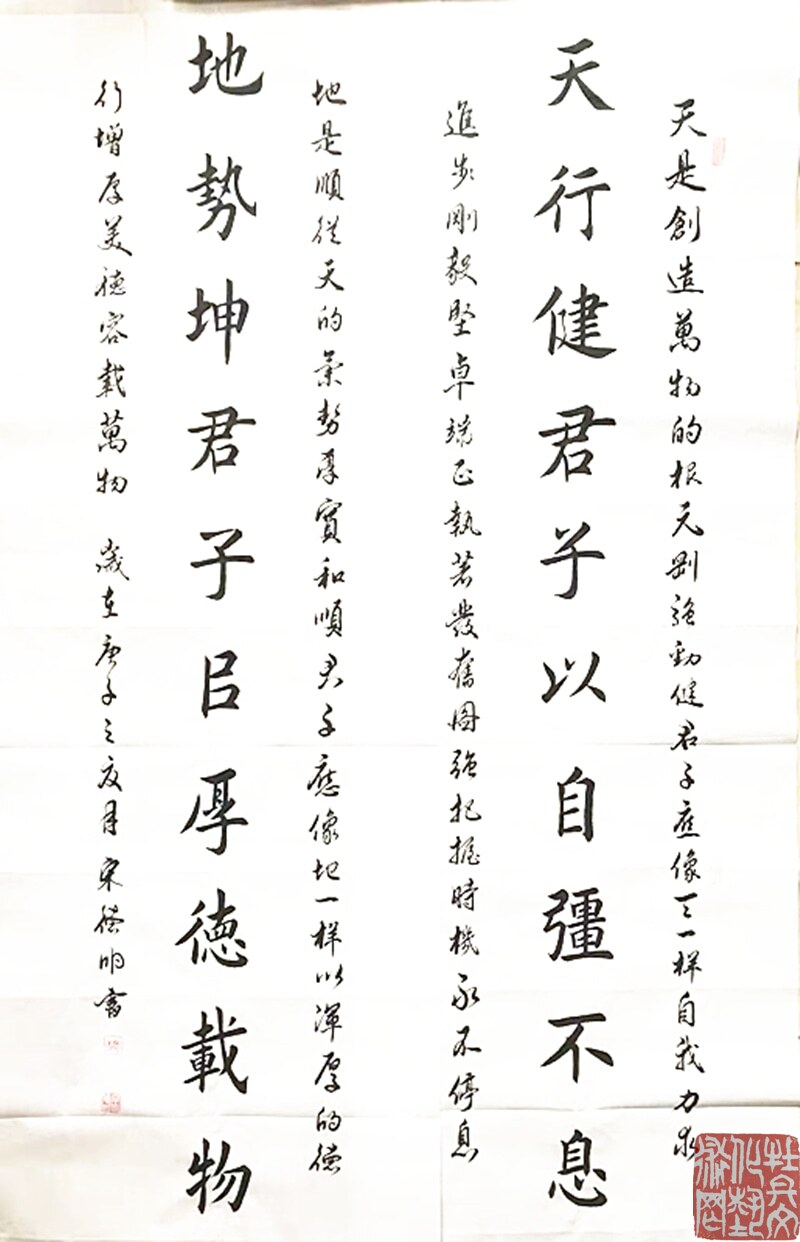 天是創造萬物的根元剛強勁健君子應像天一樣自我力求
天行健君子以自彊不息
進步剛毅堅卓端正執著發奮圖強把握時機永不停息
地是順從天的氣勢厚實和順君子應像地一样以渾厚的德
地勢坤君子㠯厚德載物
行增厚美德容載萬物 歲在庚子之夜月宋德明書